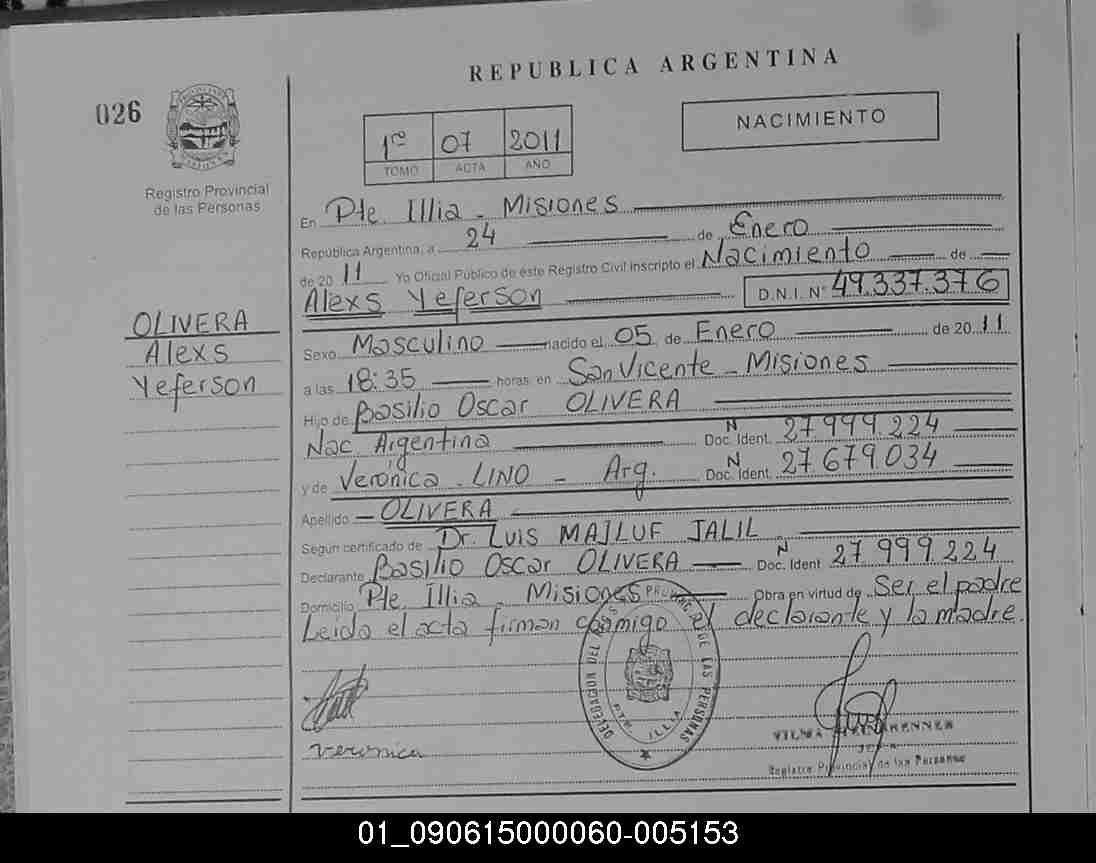 REPUBLICA ARGENTINA
026
NACIMIENTO
1ro 07 2011
TOMO ACTA AÑO
Registro Provincial
de las Personas
En Pte. Illia - Misiones
República Argentina, a 24 de Enero
de 2011 Yo Oficial Público de éste Registro Civil inscripto el Nacimiento de
Alexs Yeferson D.N.I. Nº 49.337.376
OLIVERA
Alexs
Yeferson
Sexo Masculino nacido el 05 de Enero de 2011
a las 18:35 horas en San Vicente - Misiones
Hijo de Basilio Oscar OLIVERA
Nac. Argentina Doc. Ident. N 27 999 224
y de Verónica LINO - Arg. Doc. Ident. N 27 679 034
Apellido - OLIVERA
Según certificado de Dr. LUIS MAJLUF JALIL
Declarante Basilio Oscar OLIVERA Doc. Ident N 27 999 224
Domicilio Pte. Illia - Misiones Obra en virtud de Ser el padre
Leida el acta firman conmigo el declarante y la madre.
DELEGACION DEL PROVINCIAL DE LAS PERSONAS
PTE. ILLIA
veronica
VILMA
JEFA
Registro Provincial de las Personas
01_090615000060-005153